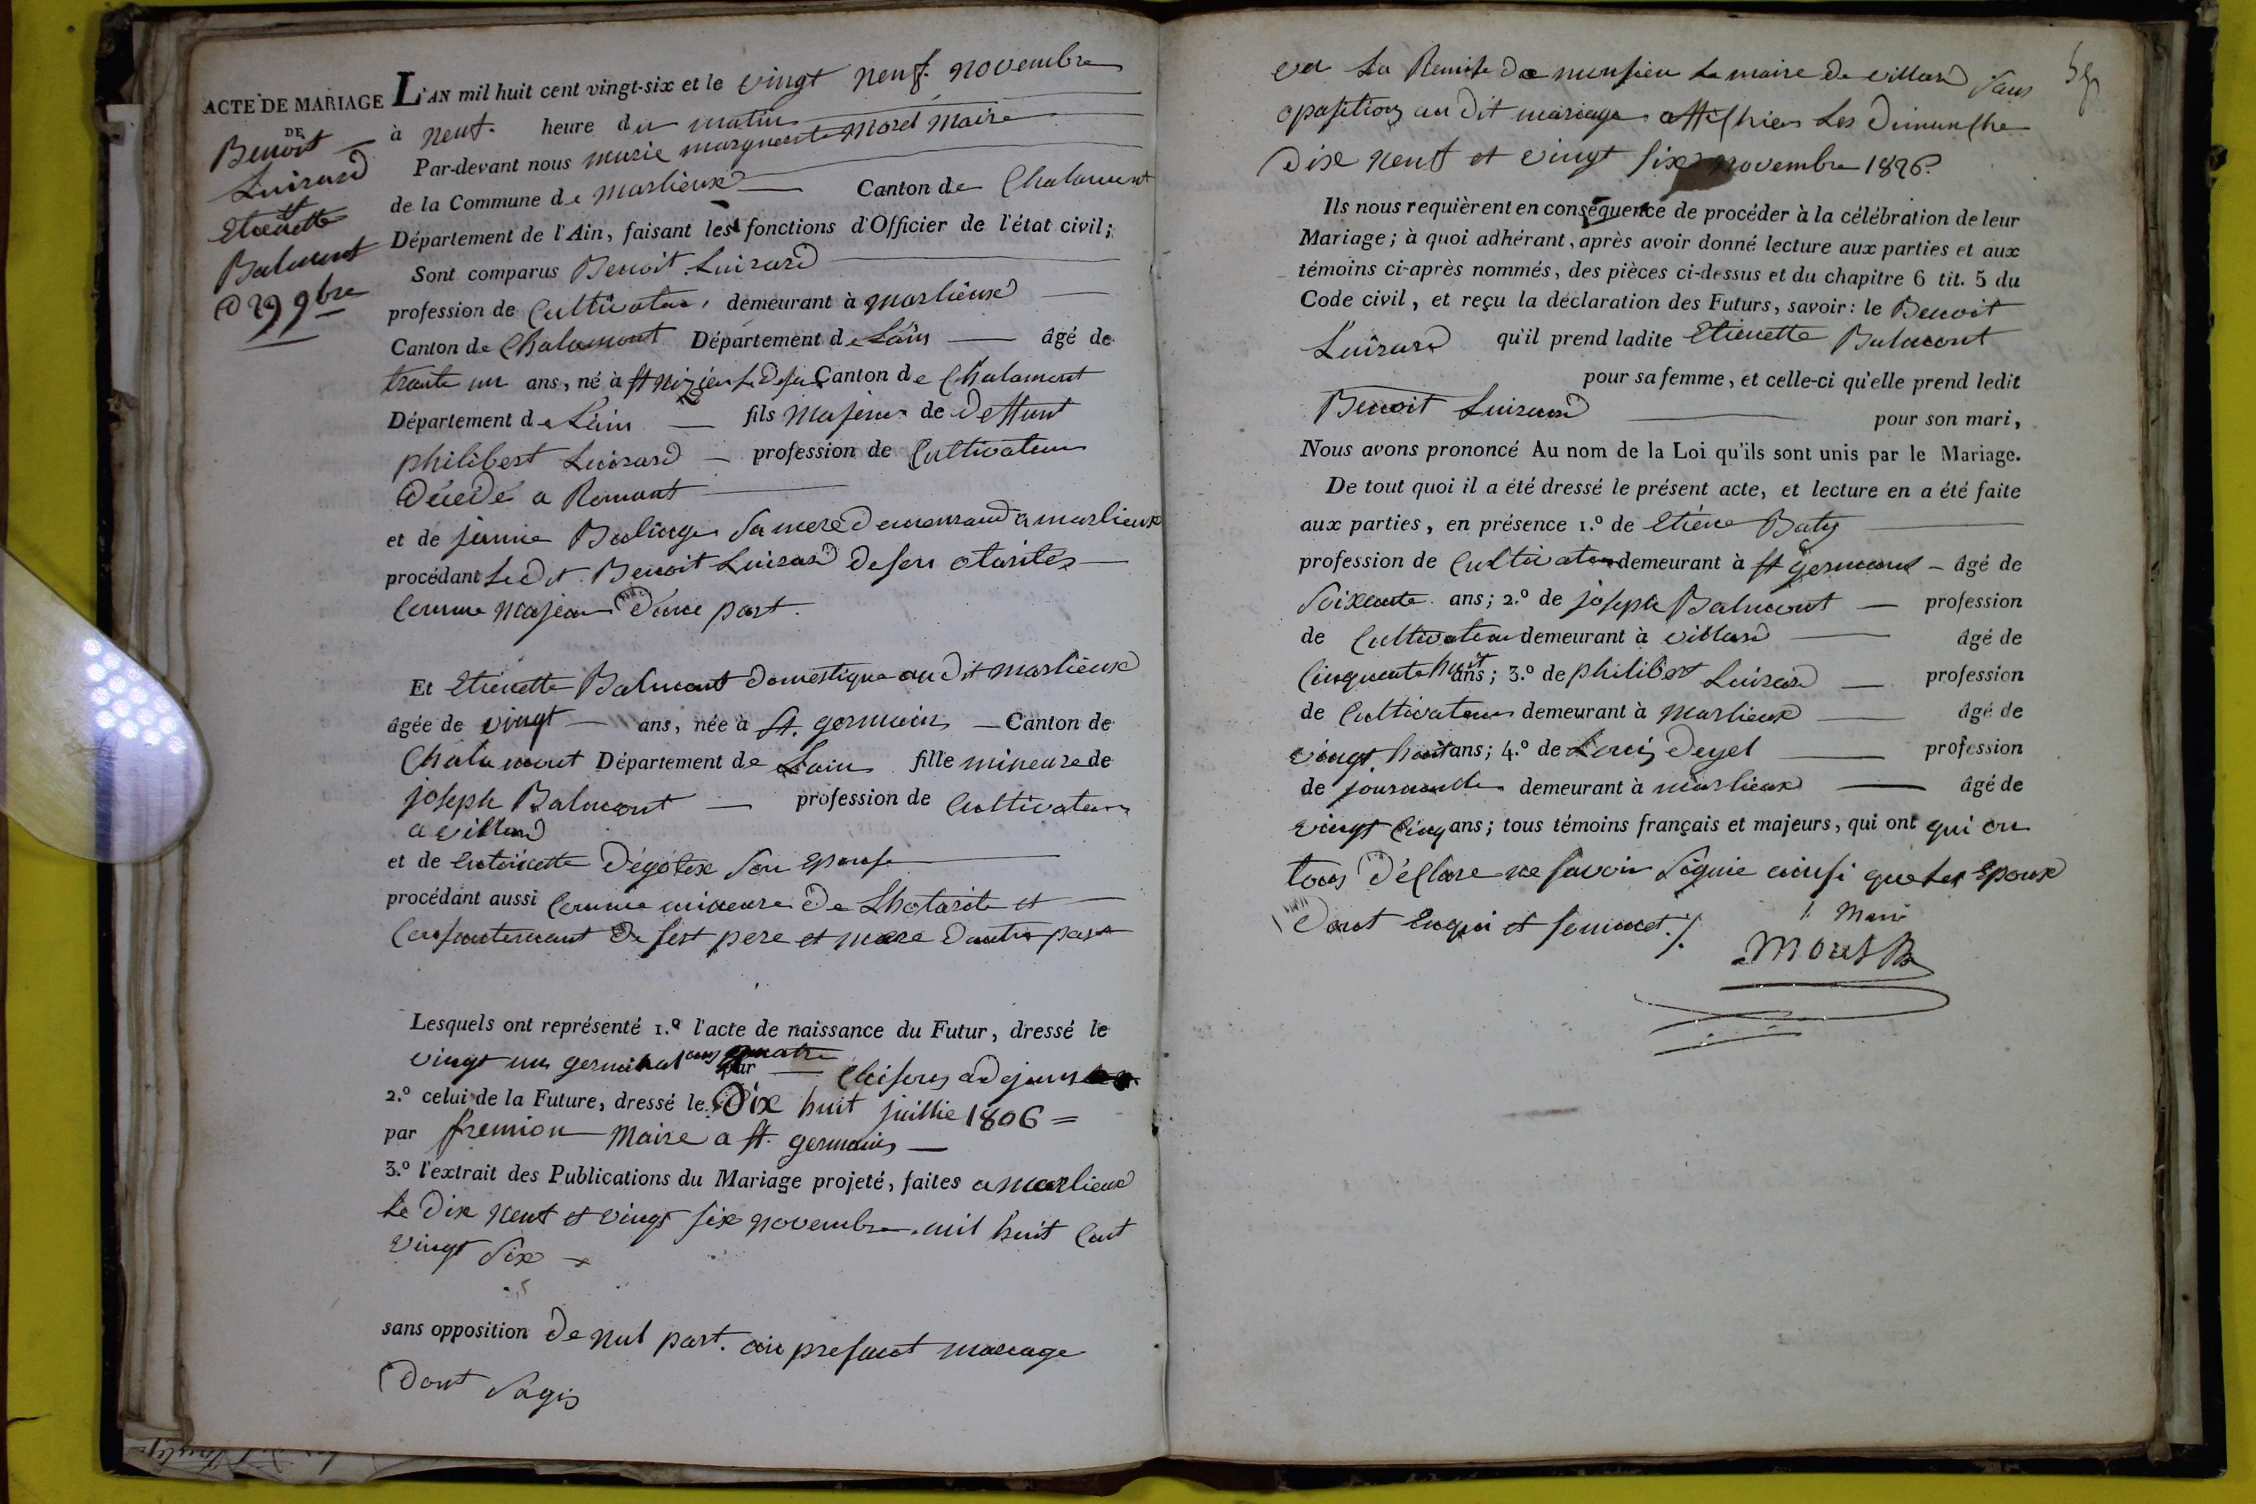 ACTE DE MARIAGE
DE
Benoit
Luisard
et
Etienette
Balmont
D 29 9bre
L'AN mil huit cent vingt-six et le vingt neuf novembre
à neuf heure du matin
Par-devant nous marie marguerite Morel Maire
de la Commune de marlieux Canton de Chalamont
Département de l'Ain, faisant les fonctions d'Officier de l'état civil;
Sont comparus Benoit Luisard
profession de Cultivateur, demeurant à marlieux
Canton de Chalamont Département de Lain âgé de
trante un ans, né à st nizier le desert Canton de Chalamont
Département de Lain fils Majeur de deffunt
philibert Luisard profession de Cultivateur
décédé a Romant
et de janne Bulinge sa mere demeurand a marlieux
procédant Ledit Benoit Luisard de ses otorités
Comme majeur d'une part
Et Etienette Balmont domestique au dit marlieux
âgée de vingt ans, née à st. germain Canton de
Chalamont Département de Lain fille mineure de
joseph Balmont profession de Cultivateur
a villard
et de entoinette Dégotex son epouse
procédant aussi Comme mineure de Lhotorité et
Consantemant de sest pere et mere dautre part
Lesquels ont représenté 1.º l'acte de naissance du Futur, dressé le
vingt un germinal ans quatre
par adejoins
2.º celui de la Future, dressé le Dix huit juillie 1806 =
par fremion Maire a st. germain
3.º l'extrait des Publications du Mariage projeté, faites a marlieux
Le dix neuf et vingt six novembre mil huit Cent
vingt six
sans opposition de nul part. au presant mariage
Dont sagis
vu La Remise de monsieu Le maire de villard sans
oposition au dit mariage affichier Les dimanche
Dix neuf et vingt six novembre 1826.
Ils nous requièrent en conséquence de procéder à la célébration de leur
Mariage; à quoi adhérant, après avoir donné lecture aux parties et aux
témoins ci-après nommés, des pièces ci-dessus et du chapitre 6 tit. 5 du
Code civil, et reçu la déclaration des Futurs, savoir: le Benoit
Luisard qu'il prend ladite Etienette Balmont
pour sa femme, et celle-ci qu'elle prend ledit
Benoit Luisard pour son mari,
Nous avons prononcé Au nom de la Loi qu'ils sont unis par le Mariage.
De tout quoi il a été dressé le présent acte, et lecture en a été faite
aux parties, en présence 1.º de Etiéne Baty
profession de Cultivateur demeurant à st germain âgé de
Soixente ans; 2.º de joseph Balmont profession
de Cultivateur demeurant à villard âgé de
Cinquente huit ans; 3.º de philibert Luisard profession
de Cultivateur demeurant à Marlieux âgé de
vingt huit ans; 4.º de Louis deyel profession
de journallie demeurant à marlieux âgé de
vingt Cinq ans; tous témoins français et majeurs, qui ont qui on
tous déClare ne savoir Signie ainsi que Les Epoux
Dont Enqui et semmet ./.
Maire
Morel